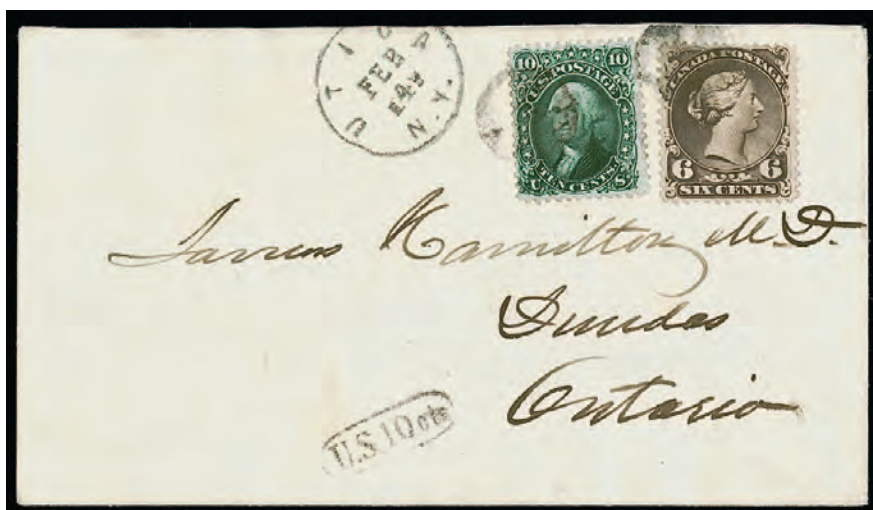 UTICA N.Y.
FEB
14
10 10
U.S. POSTAGE
TEN CENTS
U S
CANADA POSTAGE
6 6
SIX CENTS
Hamilton M.D.
Dundas
Ontario
U.S 10 cts